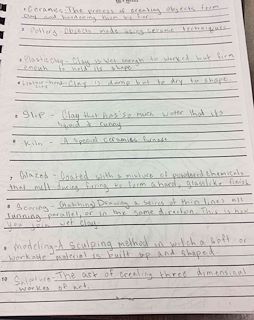 1 Ceramics - The process of creating objects from
clay and hardening them by fire.
2 Pottery - Objects made using ceramic techniques
3 Plastic clay - Clay is wet enough to worked but firm
enough to hold its shape
Clay is damp but to dry to shape
5 Slip - Clay that has so much water that its
liquid & runny
6 Kiln - A special ceramics furnace
7 Glazed - Coated with a mixture of powdered chemicals
that melt during firing to form a hard, glasslike finish
8 Scoring - Drawing a series of thin lines all
running parallel, or in the same direction. This is how
you join wet clay.
9 Modeling - A sculpting method in witch a soft or
workable material is built up and shaped
10 The act of creating three dimensional
workes of art.